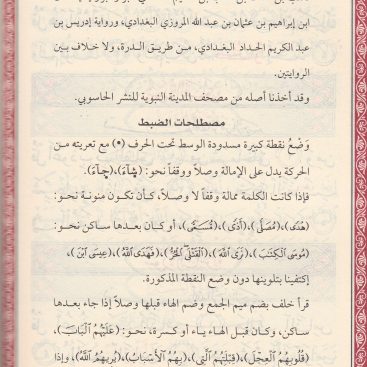 ابن إبراهيم بن عثمان بن عبد الله المروزي البغدادي، ورواية إدريس بن
عبد الكريم الحداد البغدادي، من طريق الدرة، ولا خلاف بين
الروايتين.
وقد أخذنا أصله من مصحف المدينة النبوية للنشر الحاسوبي.
مصطلحات الضبط
وَضْعُ نقطة كبيرة مسدودة الوسط تحت الحرف (•) مع تعريته من
الحركة يدل على الإمالة وصلاً ووقفاً نحو: (شآءَ)،(جآءَ).
فإذا كانت الكلمة ممالة وقفاً لا وصلاً، كأن تكون منونة نحو:
(هُدًى)،(مُصَلًّى)،(أَذًى)،(مُّسَمًّى)، أو كان بعدها ساكن نحو:
(مُوسَى الْكِتَـٰبَ)،(نَرَى اللَّهَ)،(الْقَتْلَى الْحُرُّ)،(فَهَدَى اللَّهُ)،(عِيسَى ابْنَ)،
إكتفينا بتلوينها دون وضع النقطة المذكورة.
قرأ خلف بضم ميم الجمع وضم الهاء قبلها وصلاً إذا جاء بعدها
ساكن، وكان قبل الهاء ياء أو كسرة، نحو: (عَلَيْهُمُ الْبَابَ)،
(قُلُوبِهُمُ الْعِجْلَ)،(قِبْلَتِهُمُ الَّتِي)،(بِهُمُ الْأَسْبَابُ)،(يُرِيهُمُ اللَّهُ)، وإذا